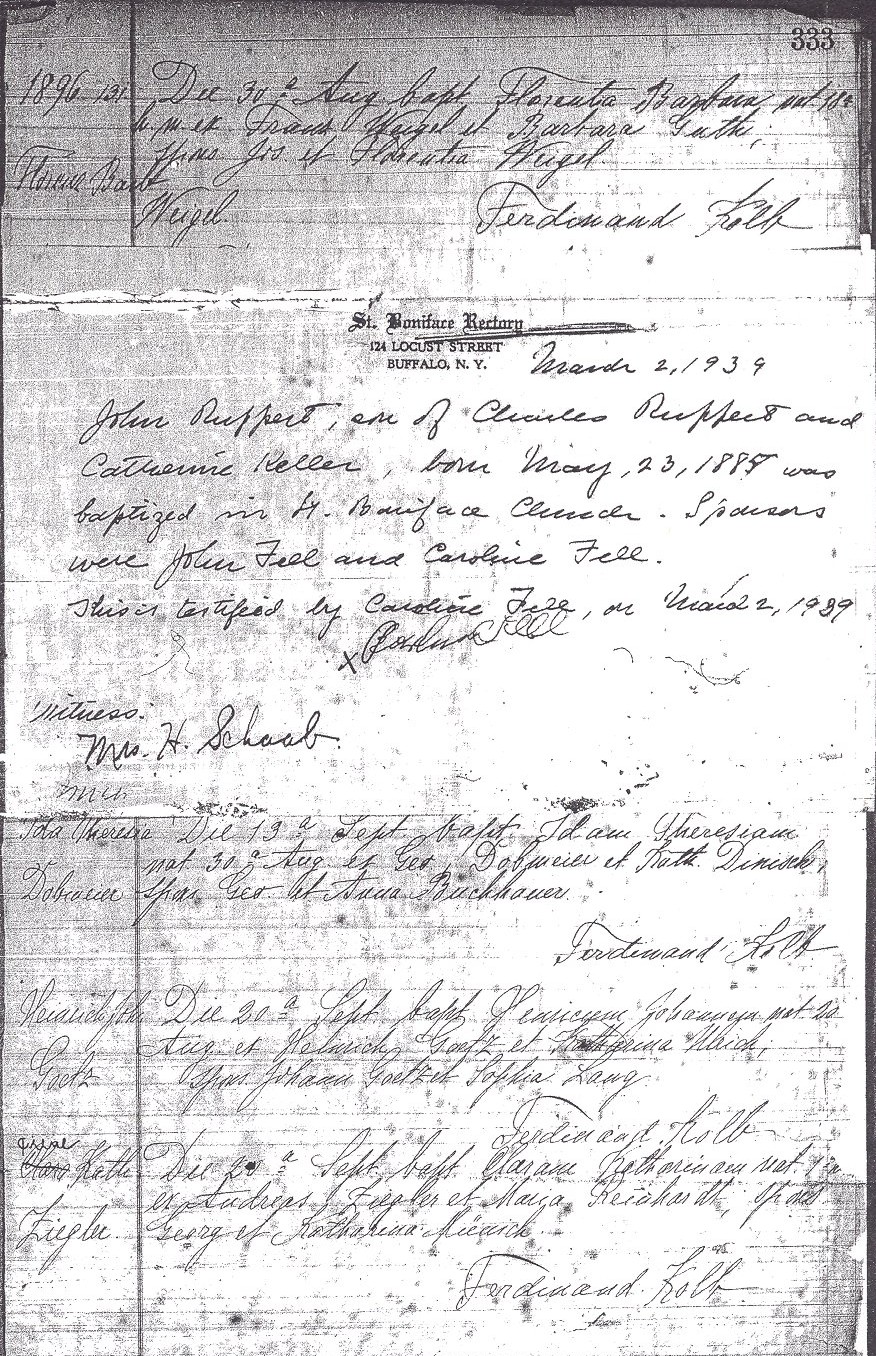 333
1896 131 Die 30ª Aug bapt Florentia Barbara nat 18ª
h. m. ex Franz Weigel et Barbara Guth;
spons Jos et Florentia Weigel.
Florenz Barb
Weigel.
Ferdinand Kolb
St. Boniface Rectory
124 LOCUST STREET
BUFFALO, N. Y.
March 2, 1939
John Ruppert, son of Charles Ruppert and
Catherine Keller, born May, 23, 1885 was
baptized in St. Boniface Church. Sponsors
were John Fell and Caroline Fell.
This is testified by Caroline Fell, on March 2, 1939
x Caroline Fell
Witness:
Mrs. H. Schaab.
Ida Theresia Die 13ª Sept bapt Idam Theresiam
nat 30ª Aug ex Geo. Dobmeier et Kath. Dinisch,
Dobmeier spons Geo. et Anna Buchhauer.
Ferdinand Kolb
Heinrich Joh Die 20ª Sept bapt Henricum Johannem nat 20
Aug ex Heinrich Goetz et Katharina Ulrich;
Goetz spons Johann Goetz et Sophia Lang
Ferdinand Kolb
Clara Kath Die 20ª Sept bapt Claram Katharinam nat
ex Andreas Ziegler et Maria Reinhardt, spons
Ziegler. Georg et Katharina
Ferdinand Kolb